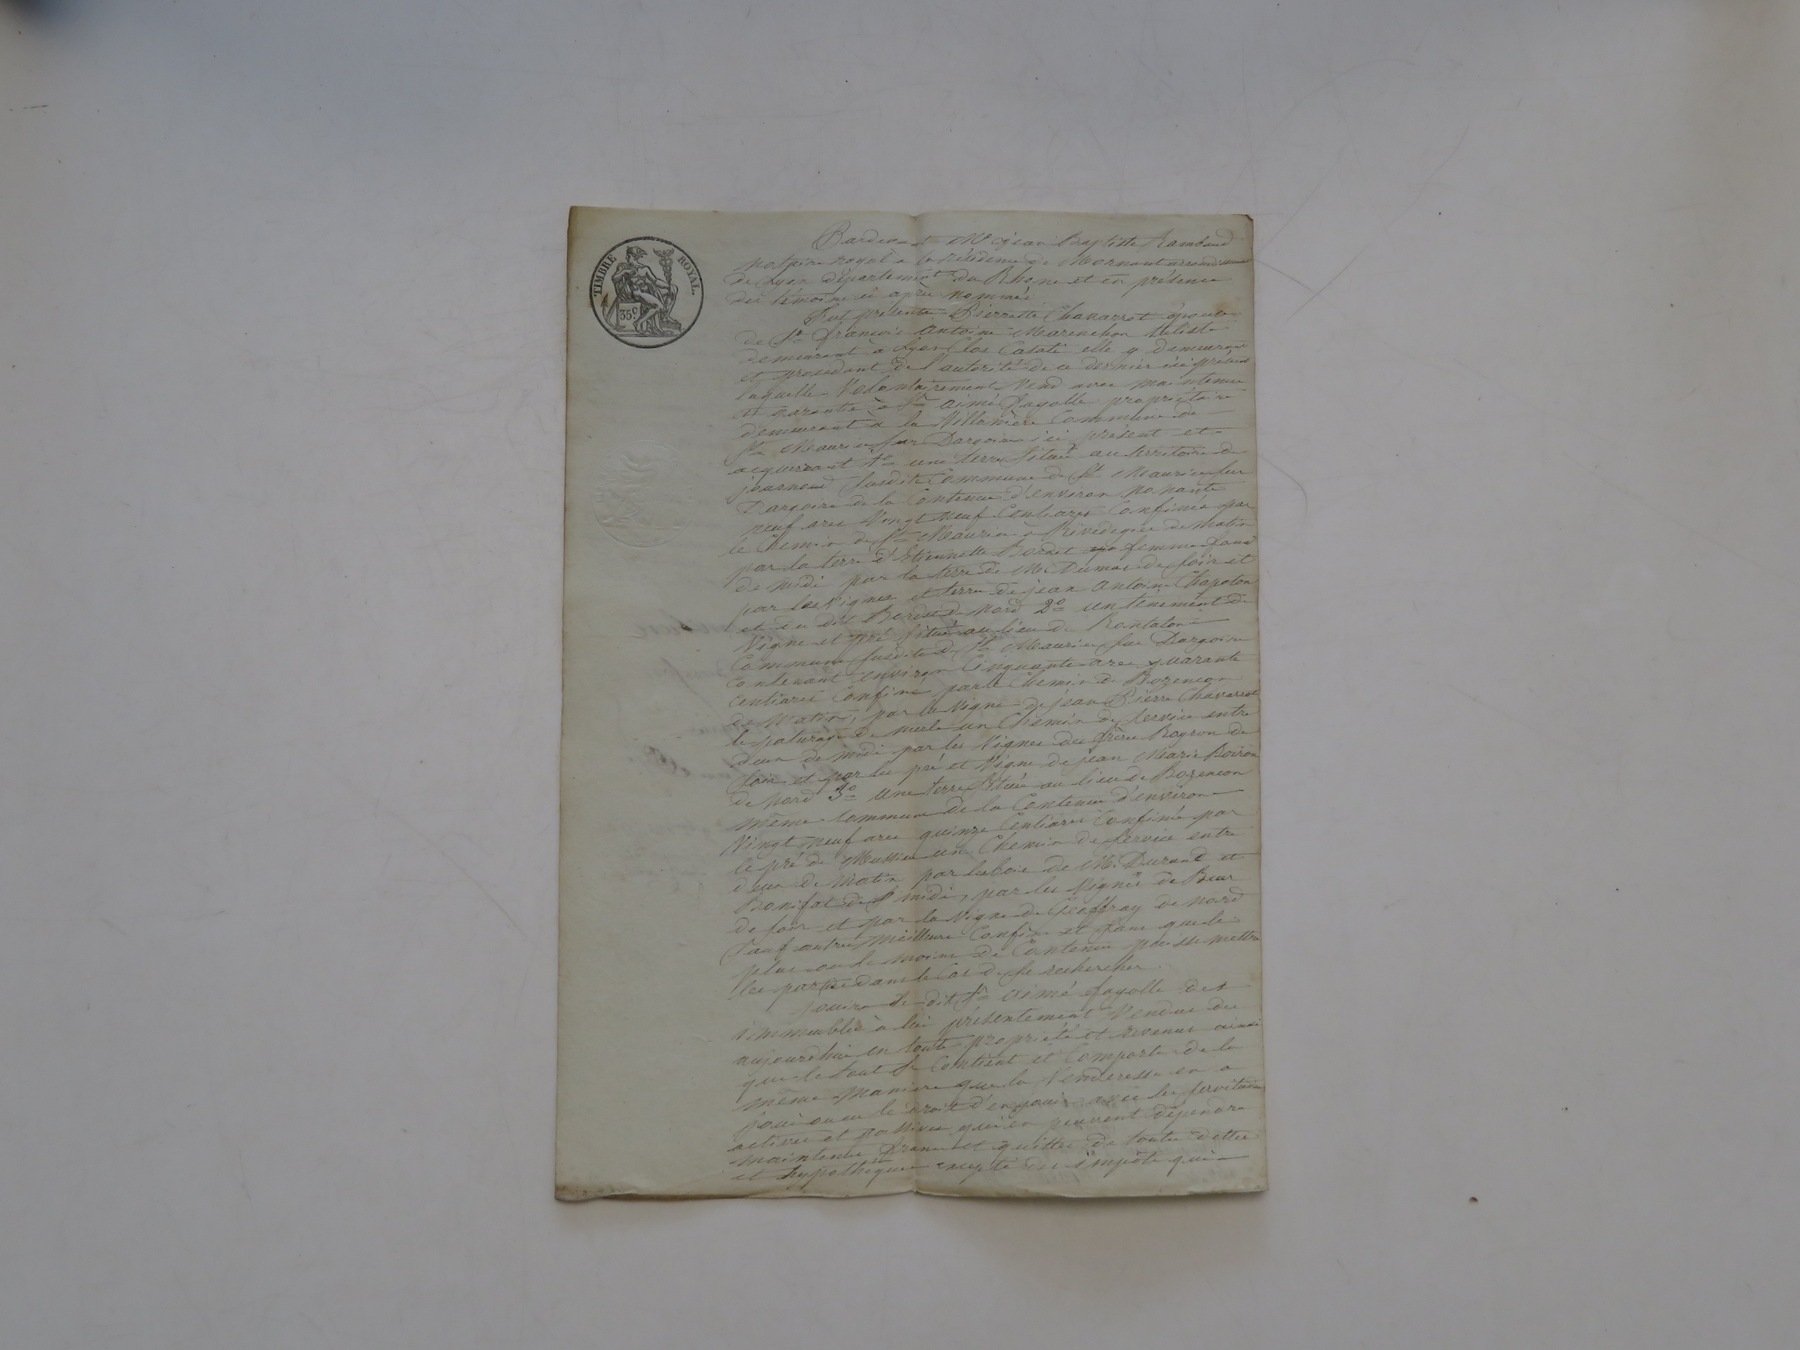 TIMBRE ROYAL.
35 c.
Pardevant Me Jean Baptiste Rambaud
notaire royal à la résidence de Mornant arrondissement
de Lyon département du Rhône et en présence
des témoins ci après nommés
Fut présente Pierrette Chavarrot épouse
de Sr françois Antoine Marenchon
demeurant à Lyon Clos Casati elle y demeurant
et procédant de l'autorité de ce dernier ici présent
laquelle Volontairement Vend avec maintenue
et garantie à Sr aimé fayolle propriétaire
demeurant à la Villonière Commune de
St Maurice sur Dargoire ici présent et
acquéreur 1o une terre située au territoire de
journoud susdite Commune de St Maurice sur
Dargoire de la Contenue d'environ nonante
neuf ares Vingt neuf Centiares Confinée par
le Chemin de St Maurice à Rivedegier de matin
par la terre d'Etiennette femme
de midi par la terre de Mr Dumas de soir et
par les Vignes et terre de jean Antoine Chapoton
et du dit de Nord 2o un tenement de
Vigne et pré situé au lieu de Rontalon
Commune susdite de St Maurice sur Dargoire
Contenant environ Cinquante ares quarante
Centiares Confiné par le Chemin de Bozencon
de Matin, par la Vigne de jean Pierre Chavarrot
le paturage de un Chemin de service entre
deux de midi par les Vignes du frère Boyron de
soir et par les pré et Vigne de jean Marie Boiron
de Nord 3o une terre située au lieu de Bozencon
même Commune de la Contenue d'environ
Vingt neuf ares quinze Centiares Confinée par
le pré de un Chemin de service entre
deux de Matin par les bois de Mr Durand et
Bonifat de midi, par les Vignes de
de soir et par la Vigne de Geoffray de nord
sauf autres meilleurs Confins et sans que le
plus ou le moins de Contenue puisse mettre
les parties dans le Cas de se rechercher
jouira le dit Sr aimé fayolle des
immeubles à lui présentement Vendus dès
aujourdhui en toute propriété et revenus ainsi
que le tout se Contient et Comporte de la
même Manière que la Venderesse en a
joui ou eu le droit d'en jouir avec les servitudes
actives et passives qui en peuvent dépendre
maintenus francs et quittes de toutes dettes
et hypothèques excepté des impôts qui